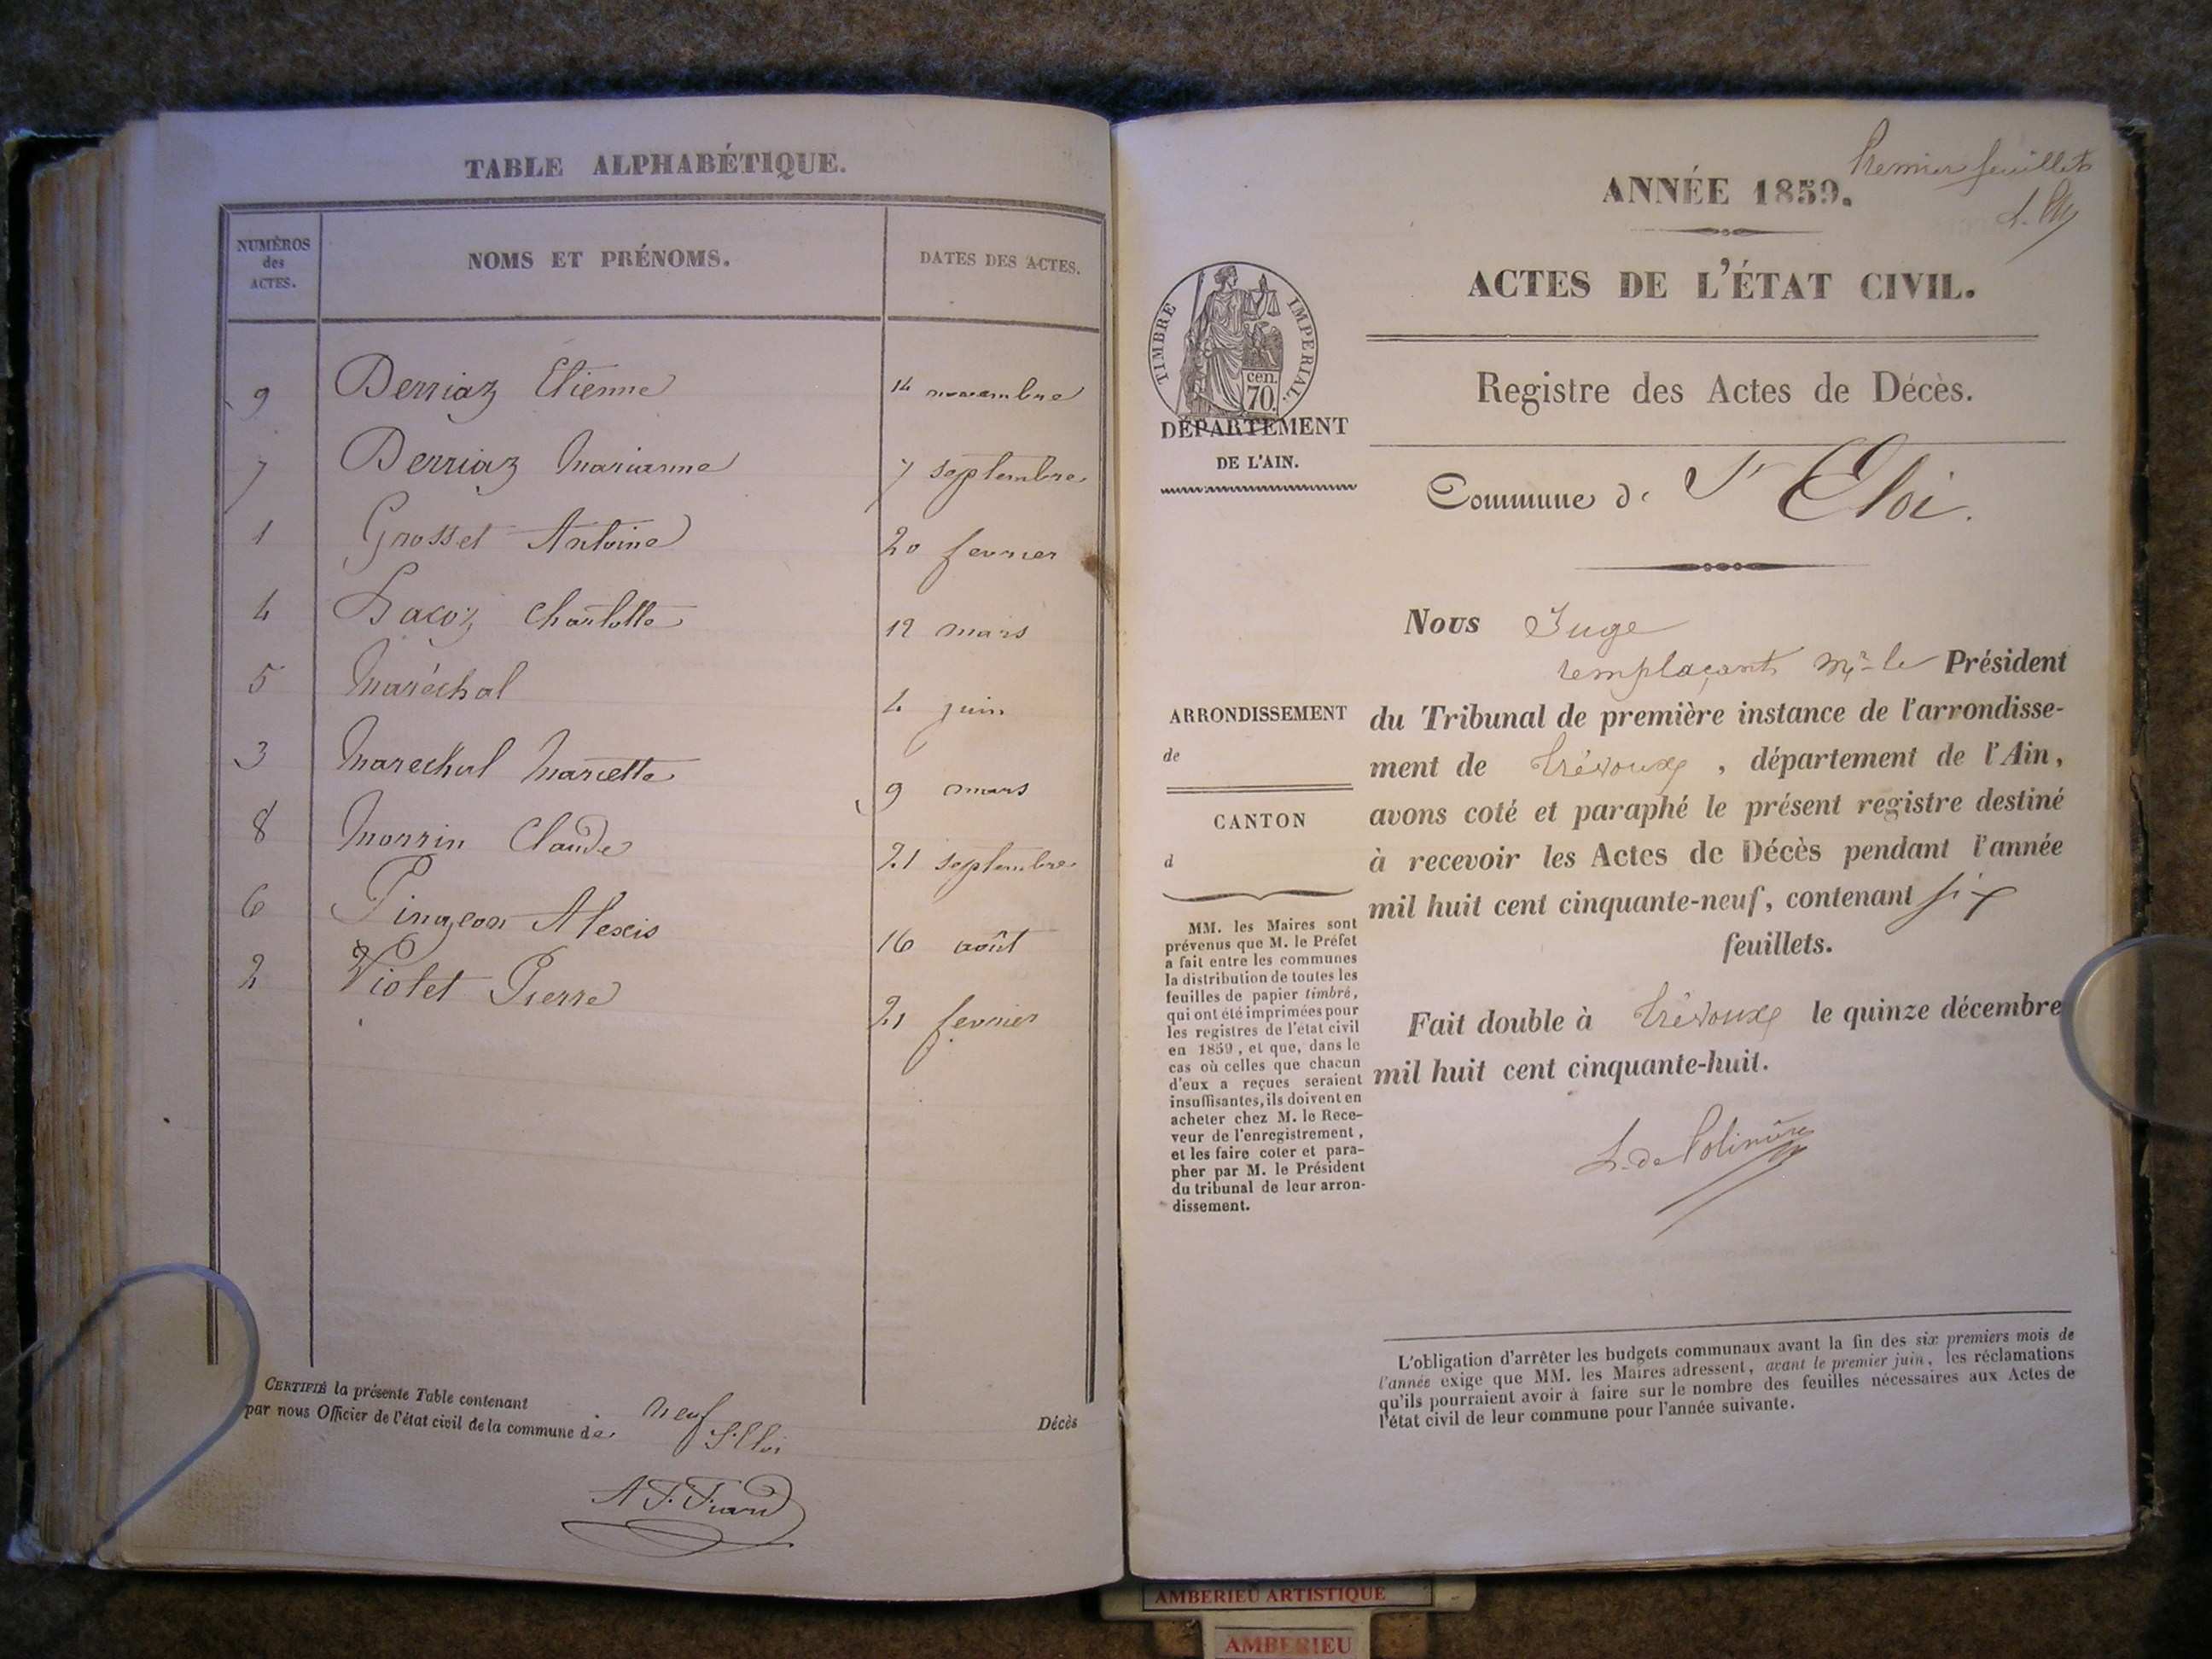 TABLE ALPHABÉTIQUE.
NUMÉROS des ACTES. NOMS ET PRÉNOMS. DATES DES ACTES.
9 Derriaz Etienne 14 novembre
7 Derriaz Marianne 7 septembre
1 Grosset Antoine 20 fevrier
4 Lacoz Charlotte 12 mars
5 Maréchal 4 juin
3 Marechal Mariette 9 mars
8 Morrin Claude 21 septembre
6 Pingeon Alexis 16 août
2 Violet Pierre 21 fevrier
CERTIFIÉ la présente Table contenant neuf Décès
par nous Officier de l'état civil de la commune de St Eloi
Premier feuillet
ANNÉE 1859.
ACTES DE L'ÉTAT CIVIL.
TIMBRE IMPERIAL.
cen.
70.
Registre des Actes de Décès.
DÉPARTEMENT
DE L'AIN.
Commune de St Eloi.
Nous Juge
remplaçant Mr le Président
du Tribunal de première instance de l'arrondisse-
ment de Trévoux, département de l'Ain,
avons coté et paraphé le présent registre destiné
à recevoir les Actes de Décès pendant l'année
mil huit cent cinquante-neuf, contenant six
feuillets.
Fait double à Trévoux le quinze décembre
mil huit cent cinquante-huit.
L. de Polinière
ARRONDISSEMENT
de
CANTON
d
MM. les Maires sont
prévenus que M. le Préfet
a fait entre les communes
la distribution de toutes les
feuilles de papier timbré,
qui ont été imprimées pour
les registres de l'état civil
en 1859, et que, dans le
cas où celles que chacun
d'eux a reçues seraient
insuffisantes, ils doivent en
acheter chez M. le Rece-
veur de l'enregistrement,
et les faire coter et para-
pher par M. le Président
du tribunal de leur arron-
dissement.
L'obligation d'arrêter les budgets communaux avant la fin des six premiers mois de
l'année exige que MM. les Maires adressent, avant le premier juin, les réclamations
qu'ils pourraient avoir à faire sur le nombre des feuilles nécessaires aux Actes de
l'état civil de leur commune pour l'année suivante.
AMBERIEU ARTISTIQUE
AMBERIEU